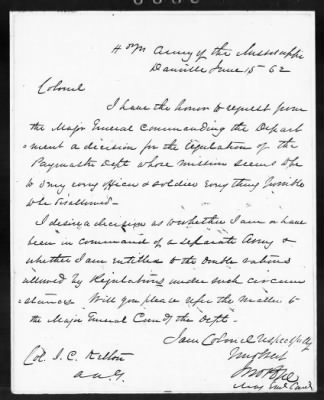 Hd Qrs Army of the Mississippi
Danville June 15 62
Colonel
I have the honor to request from
the Major General Commanding the Depart
ment a decision for the regulation of the
Paymaster Dept whose mission seems to be
to deny every officer & soldier every thing possible
to be disallowed -
I desire a decision as to whether I am or have
been in command of a separate Army &
whether I am entitled to the double rations
allowed by Regulations under such circum
stances. Will you please refer the matter to
the Major General Comdg the Dept.
I am Colonel respectfully
Jno Pope
Maj Genl Comdg
Col. J. C. Kelton
A A G.